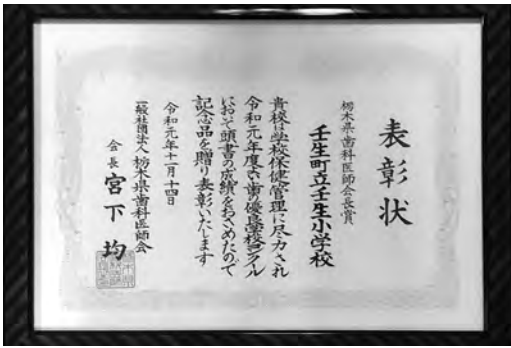 表彰状
栃木県歯科医師会長賞
壬生町立壬生小学校
貴校は学校保健管理に尽力され
令和元年度よい歯の優良学校コンクール
において頭書の成績をおさめたので
記念品を贈り表彰いたします
令和元年十一月十四日
一般社団法人栃木県歯科医師会
会長 宮下均